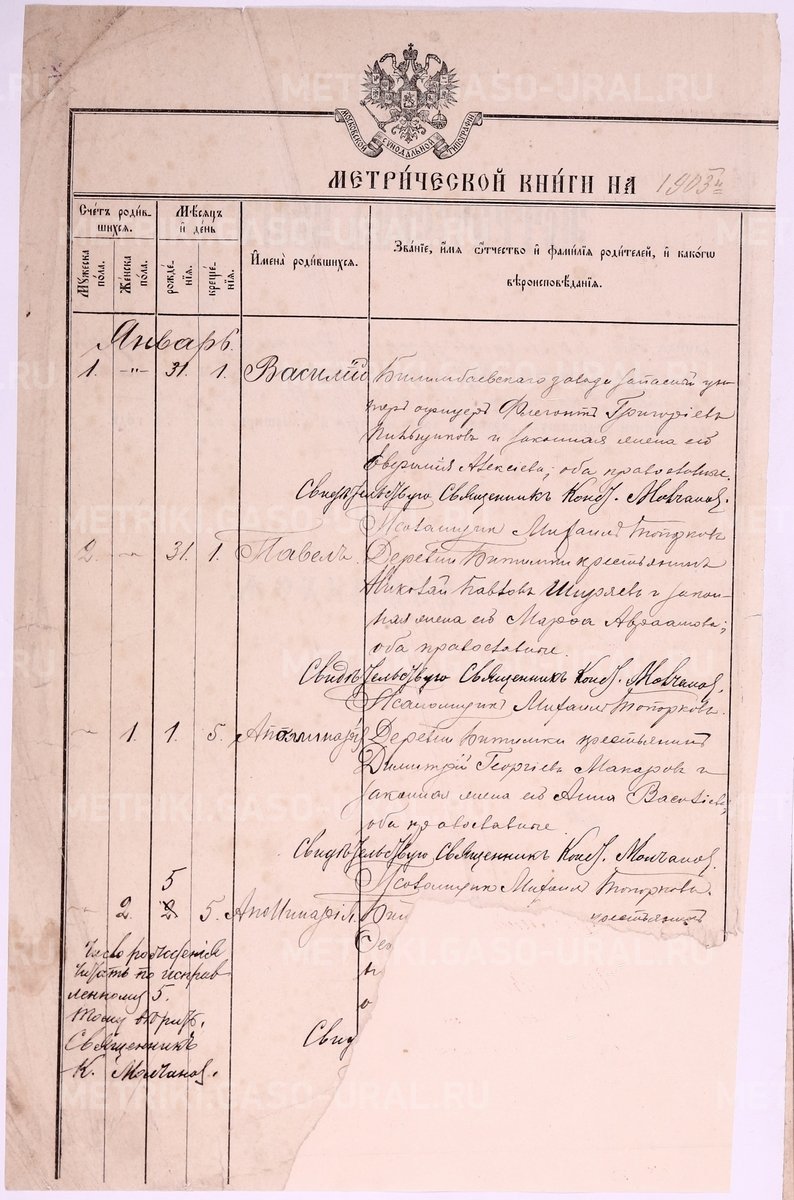 МОСКОВСКОЙ СѴНОДАЛЬНОЙ ТИПОГРАФІИ
МЕТРИ́ЧЕСКОЙ КНИ́ГИ НА 1903
Сче́тъ роди́в-
шихся.
Мѣ́сяцъ
и҆ де́нь
Мꙋ́жеска
по́ла.
Же́нска
по́ла.
рожде́-
нїя.
креще́-
нїя.
И҆мена̀ роди́вшихся.
Зва́нїе, и҆́мя ѻ҆́тчество и҆ фами́лїя роди́телей, и҆ како́гѡ
вѣроисповѣ́данїя.
Январь.
1. -"- 31. 1. Василій Билимбаевскаго завода запасный ун-
теръ офицеръ Флегонтъ Григоріевъ
и законная жена его
Евфимія Алексіева; оба православные.
Свидѣтельствую Священникъ Конст. Молчанов.
Псаломщикъ Михаилъ Топорковъ
2. -"- 31. 1. Павелъ. Деревни Битимки крестьянинъ
Николай Павловъ Ширяевъ и закон-
ная жена его Марѳа Авраамова;
оба православные.
Свидѣтельствую Священникъ Конст. Молчанов.
Псаломщикъ Михаилъ Топорковъ.
-"- 1. 1. 5. Аполлинарія Деревни Битимки крестьянинъ
Димитрій Георгіевъ Макаровъ и
законная жена его Анна Васильева,
оба православные.
Свидѣтельствую Священникъ Конст. Молчанов.
5
Псаломщикъ Михаилъ Топорковъ.
-"- 2. 2 5. Аполлинарія. Би крестьянинъ
Число рожденія
читать по исправ
ленному 5.
Тому вѣрить.
Свид
Священникъ
К. Молчанов.
METRIKI.GASO-URAL.RU